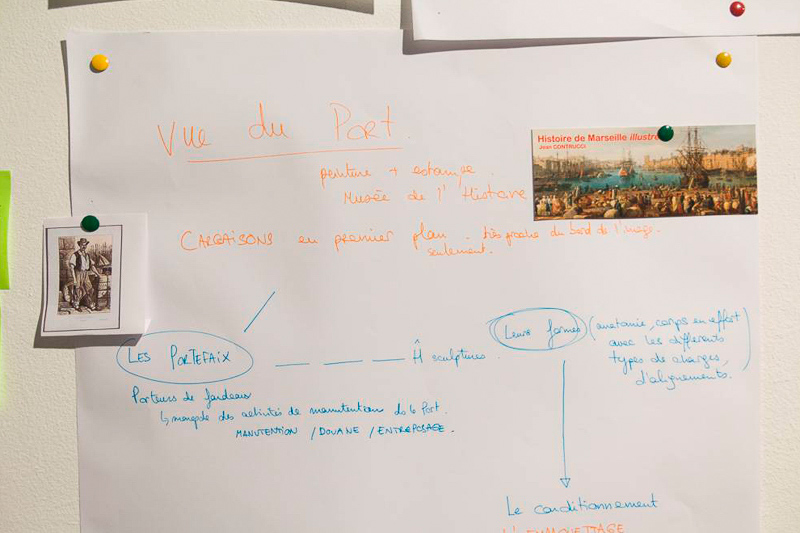 Vue du Port.
Histoire de Marseille illustrée
Jean CONTRUCCI
peinture + estampe.
Musée de l'Histoire
CARGAISONS en premier plan. très proche du bord de l'image
seulement.
LES PORTEFAIX
sculptures.
Leurs formes
(anatomie, corps en effort
avec les différents
types de charges,
d'alignements.)
Porteurs de fardeaux
↳ monopole des activités de manutention ds le Port.
MANUTENTION / DOUANE / ENTREPOSAGE.
Le conditionnement